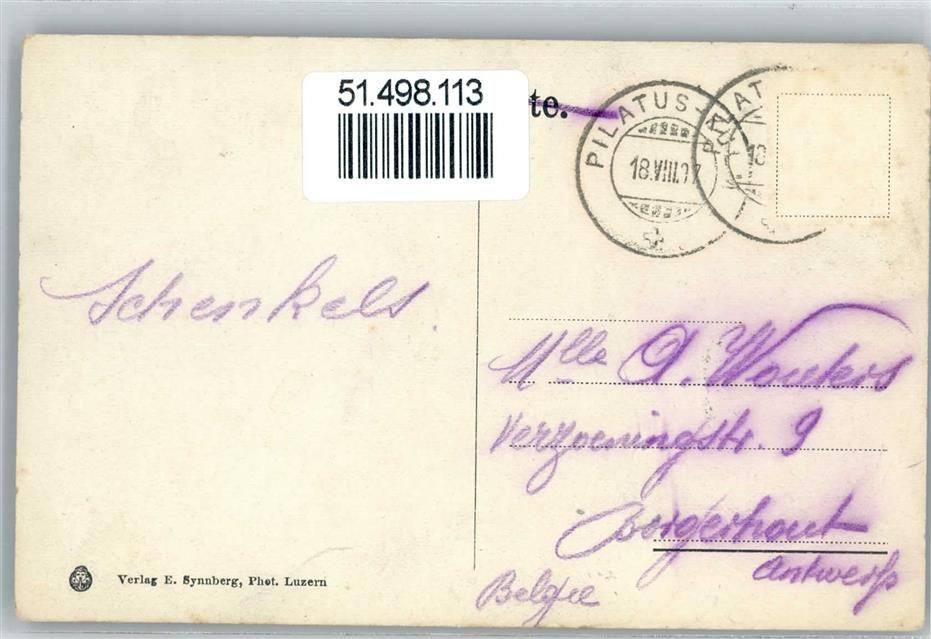 51.498.113
te.
PILATUS
18.VIII.07
PILAT
18
Schenkels.
Mlle A. Wouters
Verzoeningstr. 9
Borgerhout
Antwerp
Belgie
Verlag E. Synnberg, Phot. Luzern